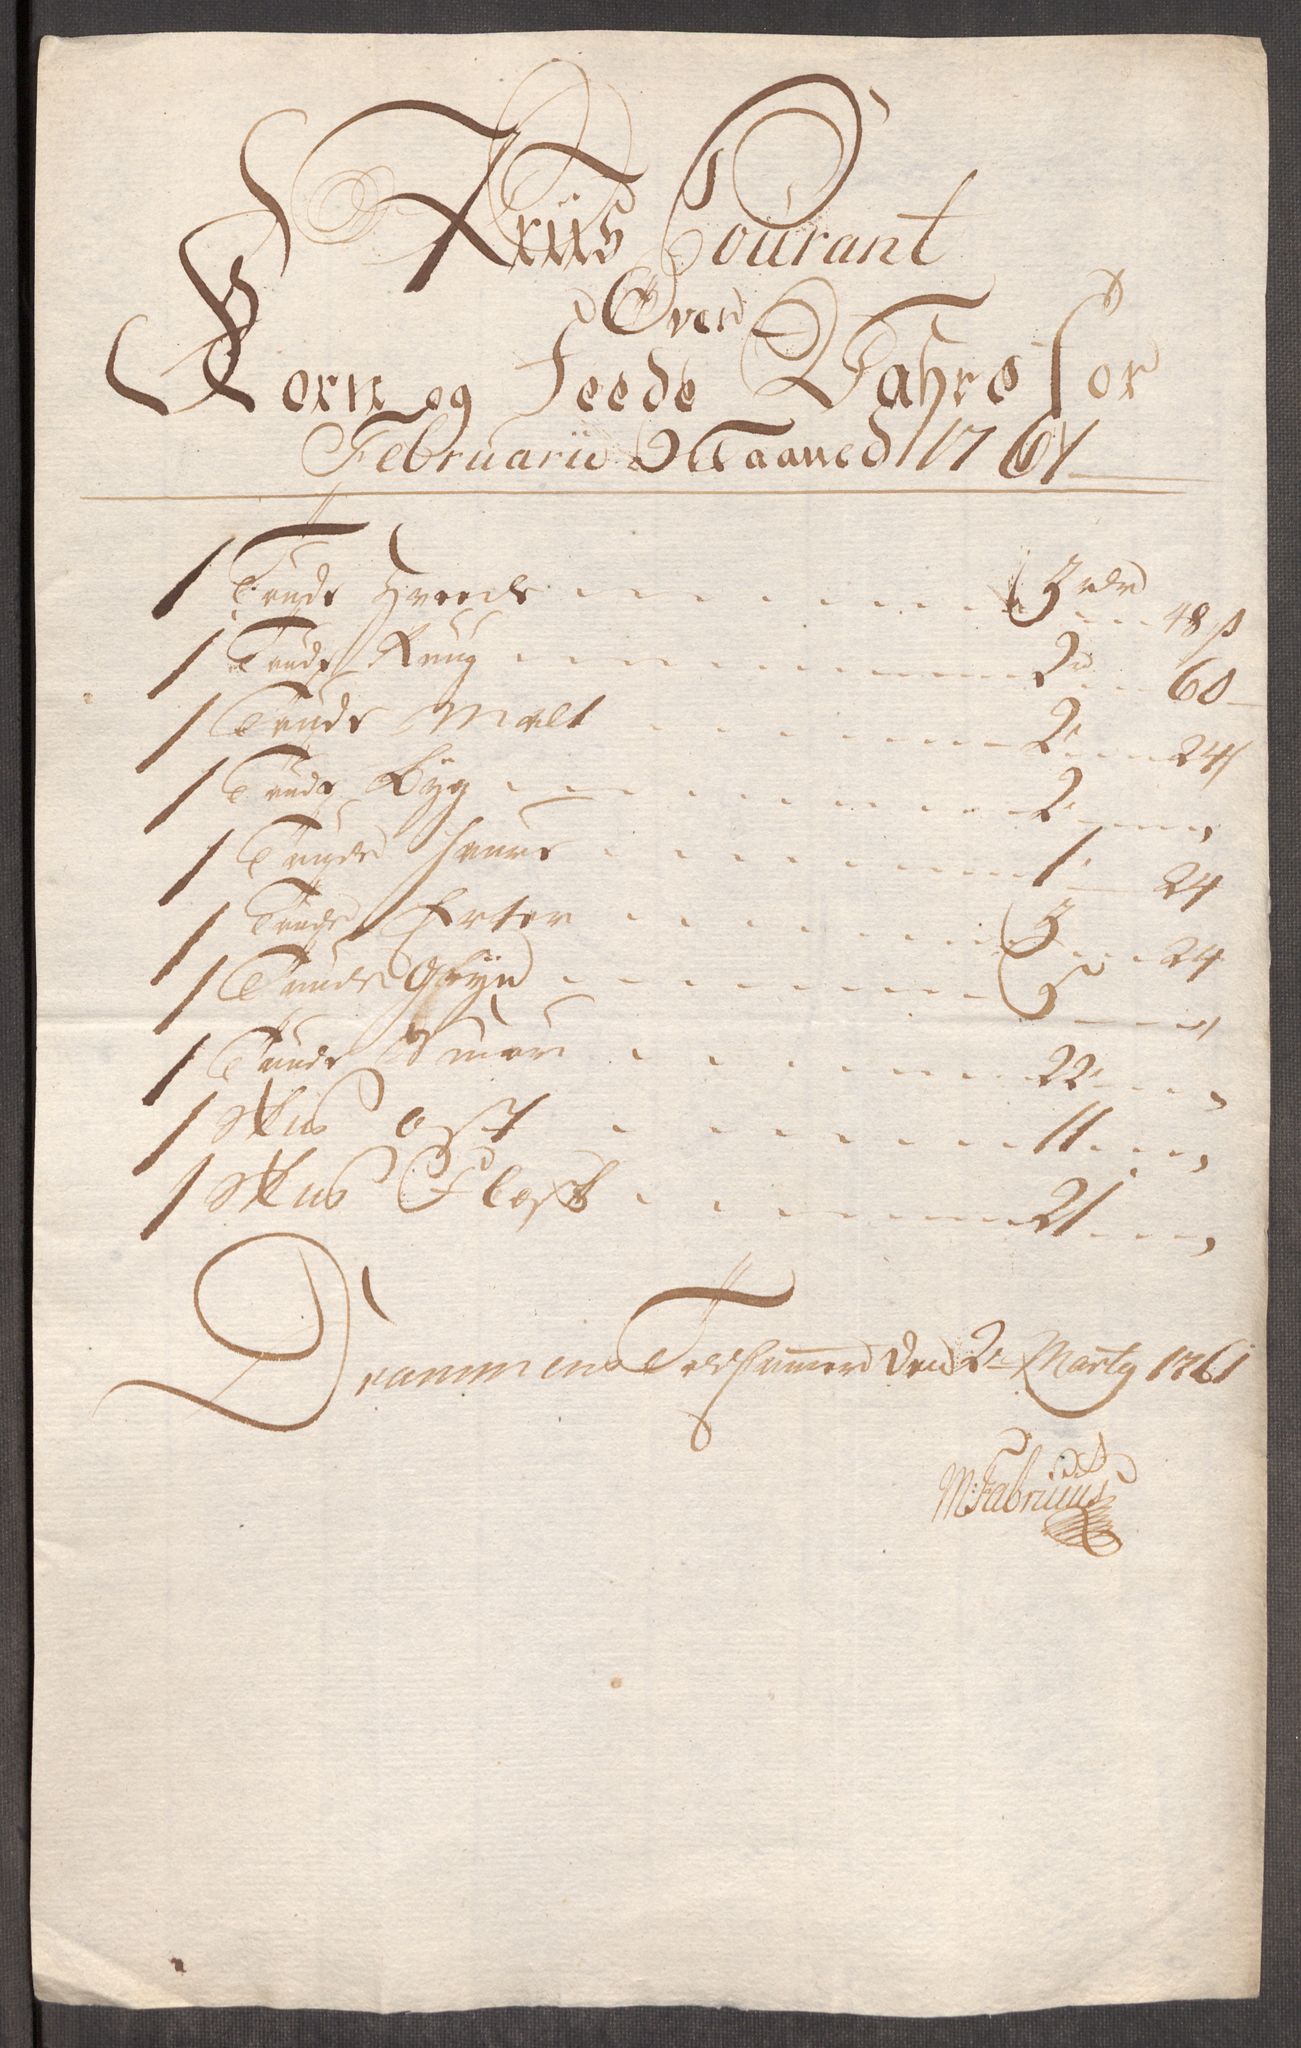 Priis Courant
Over
Korn og Feede Vahre for
Februarii Maaned 1761
1 Tønde Hveede 3 rdr 48 ß
1 Tønde Rùug 2 60
1 Tønde Malt 2 24
1 Tønde Byg 2
1 Tønde Haure 1 24
1 Tønde Erter 3 24
1 Tønde Gryn 5
1 Tønde Smør 22
1 Skũ Ost 11
1 Skũ Flesk 21
Drammens Toldkammer den 2 Marty 1761
M: Fabricius